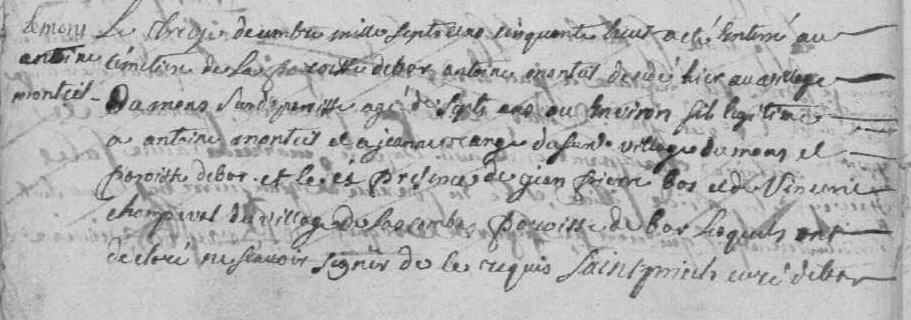 Lemons
antoine
monteil
Le treze decembre mille sept cens cinquante huit a eté enterré au
cimetiere de la paroisse debar antoine monteil decedé hier au village
Dumons susd paroisse agé de sept ans ou environ fils legitime
a antoine monteil et a jeanne du susd village dumons et
paroisse debar et le es presences de jean pierre bos et de Vincent
champeval du village de lacombe paroisse de bar lesquels ont
declaré ne scavoir signer de ce requis Saintpriech curé debar